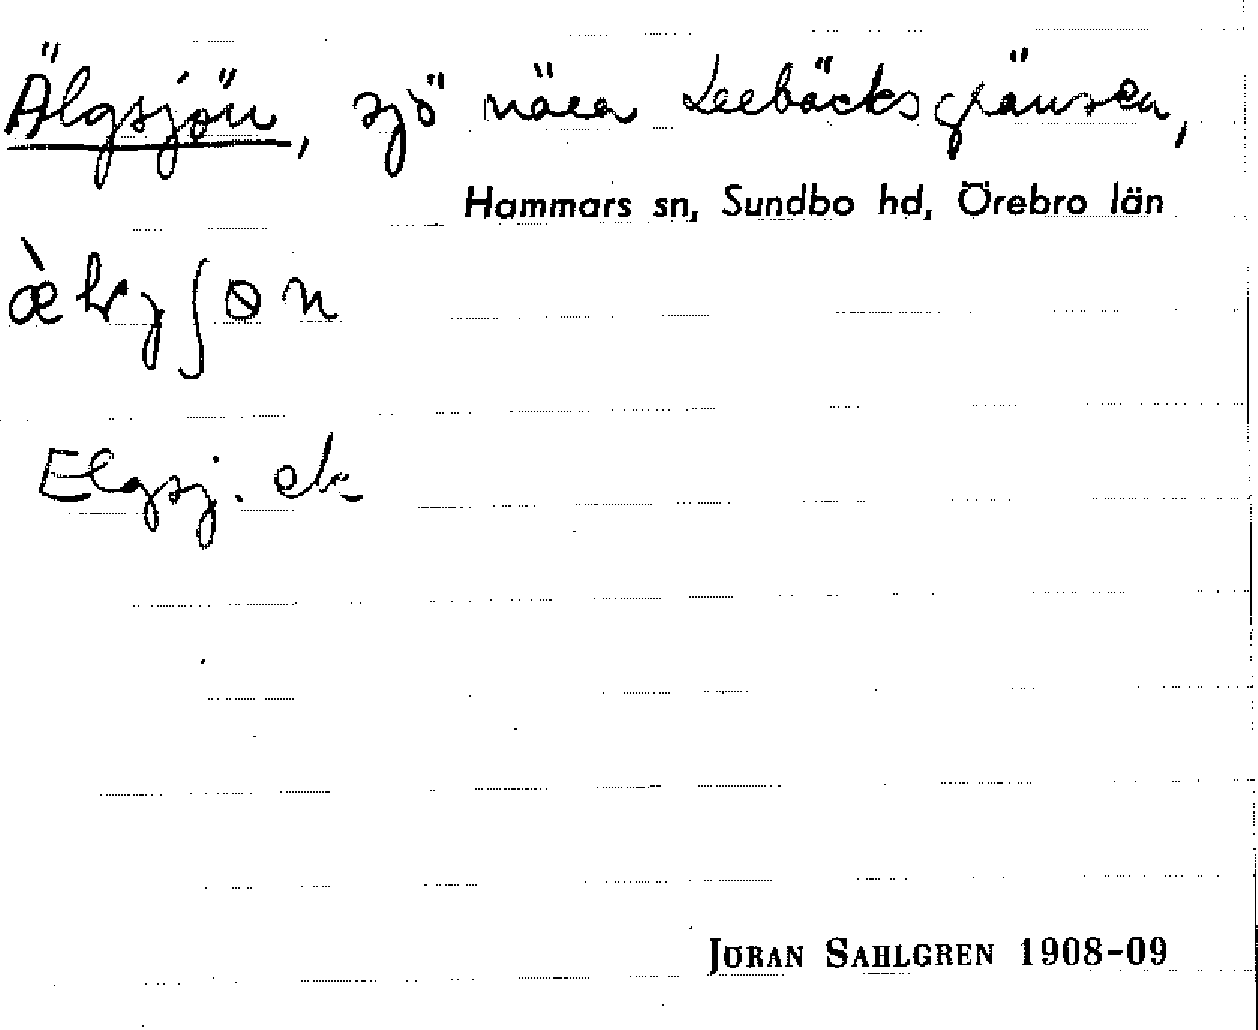 Älgsjön, sjö nära Lerbäcksgränsen,
Hammars sn, Sundbo hd, Örebro län
Elgsj. ek
JÖRAN SAHLGREN 1908-09